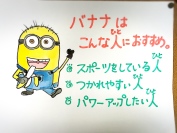 バナナは
こんな人におすすめ。
スポーツをしている人
つかれやすい人
パワーアップしたい人